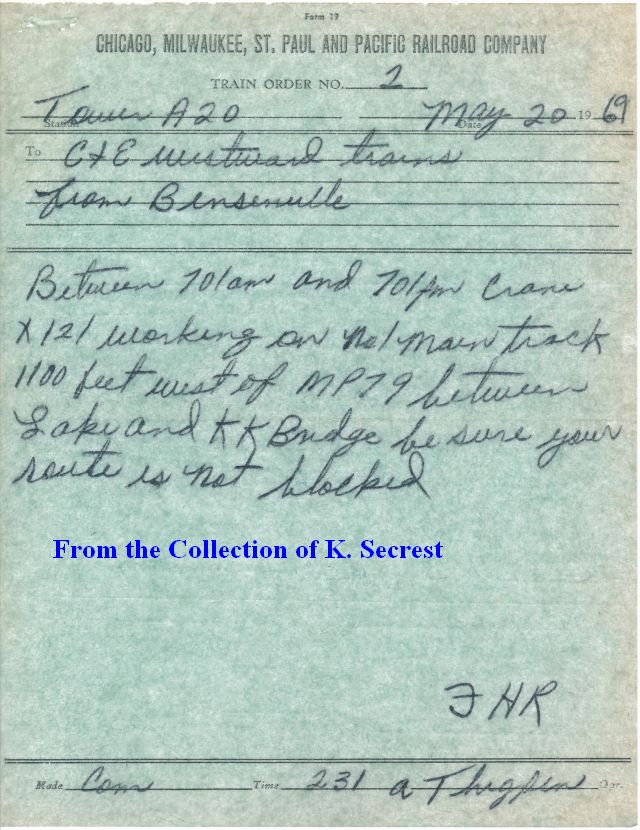 Form 19
CHICAGO, MILWAUKEE, ST. PAUL AND PACIFIC RAILROAD COMPANY
TRAIN ORDER NO. 2
Tower A20 May 20 19 69
Station Date
To C&E westward trains
from Bensenville
Between 701am and 701pm Crane
X121 working on No1 main track
1100 feet west of MP79 between
Lake and KK Bridge be sure your
route is not blocked
From the Collection of K. Secrest
FHR
Made Com Time 231 a Thigpen Opr.